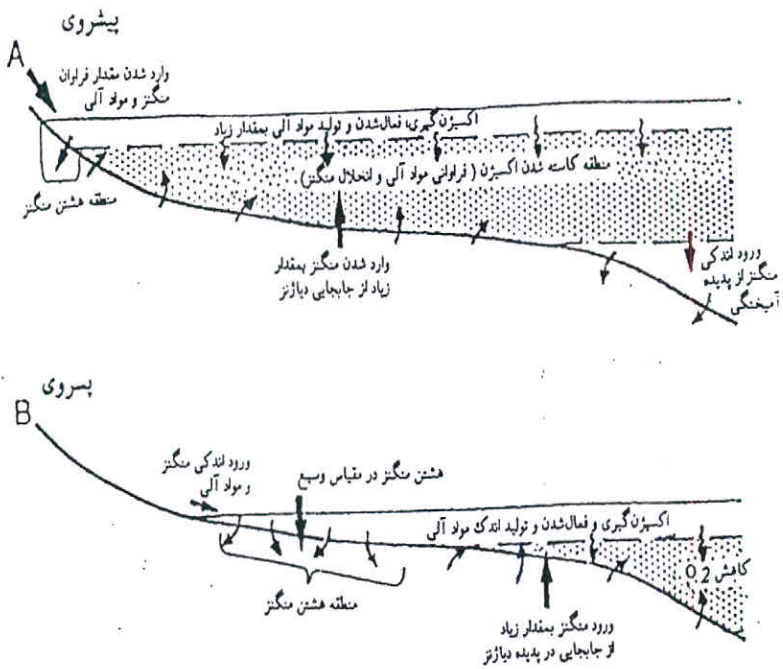 پیشروی
A
وارد شدن مقدار فراوان
منگنز و مواد آلی
اکسیژن‌گیری، فعال‌شدن و تولید مواد آلی بمقدار زیاد
منطقه کاسته شدن اکسیژن ( فراوانی مواد آلی و انحلال منگنز)
منطقه هشتن منگنز
وارد شدن منگنز بمقدار
زیاد از جابجایی دیاژنز
ورود اندکی
منگنز از پدیده
آمیختگی
پسروی
B
ورود اندکی منگنز
و مواد آلی
هشتن منگنز در مقیاس وسیع
اکسیژن‌گیری و فعال‌شدن و تولید اندک مواد آلی
کاهش O2
منطقه هشتن منگنز
ورود منگنز بمقدار زیاد
از جابجایی در پدیده دیاژنز